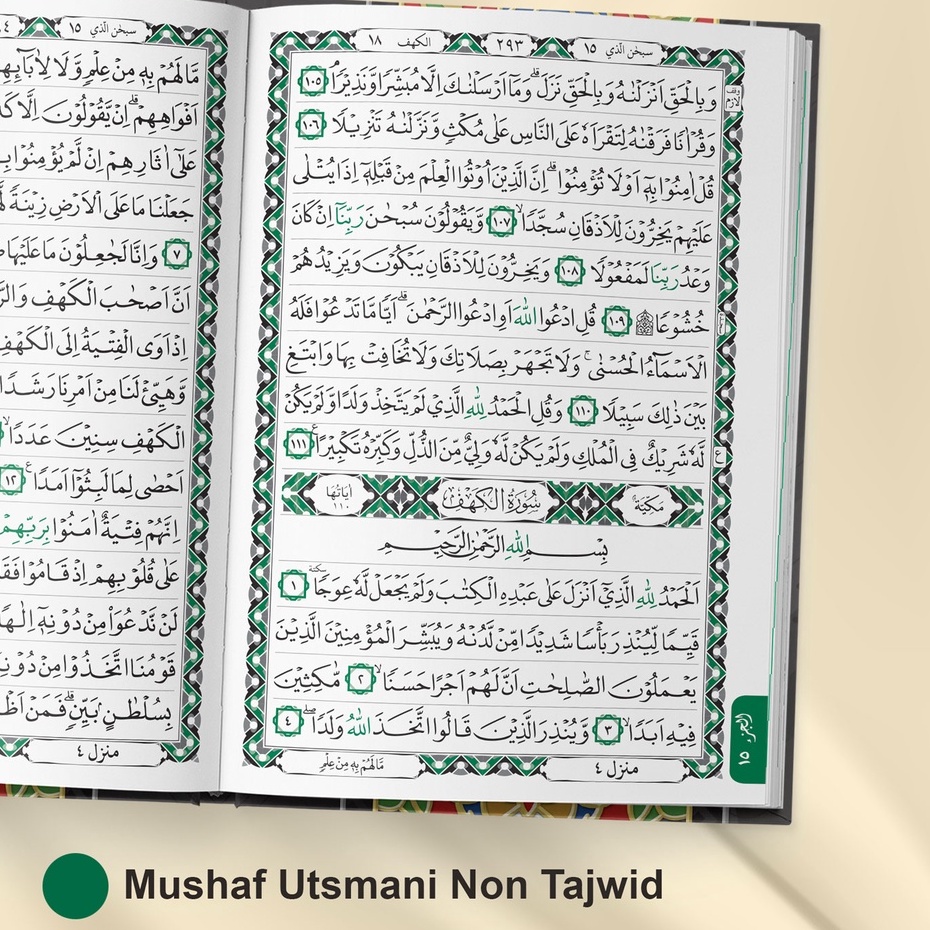 سبحن الذي ١٥
الكهف ١٨
٢٩٣
سبحن الذي ١٥
وَبِالْحَقِّ اَنْزَلْنٰهُ وَبِالْحَقِّ نَزَلَ ؕ وَمَاۤ اَرْسَلْنٰكَ اِلَّا مُبَشِّرًا وَّنَذِيْرًا ۘ ١٠٥
وقف لازم
وَقُرْاٰنًا فَرَقْنٰهُ لِتَقْرَاَهٗ عَلَى النَّاسِ عَلٰى مُكْثٍ وَّنَزَّلْنٰهُ تَنْزِيْلًا ١٠٦
قُلْ اٰمِنُوْا بِهٖۤ اَوْ لَا تُؤْمِنُوْا ؕ اِنَّ الَّذِيْنَ اُوْتُوا الْعِلْمَ مِنْ قَبْلِهٖۤ اِذَا يُتْلٰى
عَلَيْهِمْ يَخِرُّوْنَ لِلْاَذْقَانِ سُجَّدًا ۙ ١٠٧ وَّيَقُوْلُوْنَ سُبْحٰنَ رَبِّنَاۤ اِنْ كَانَ
وَعْدُ رَبِّنَا لَمَفْعُوْلًا ١٠٨ وَيَخِرُّوْنَ لِلْاَذْقَانِ يَبْكُوْنَ وَيَزِيْدُهُمْ
خُشُوْعًا ۩ ١٠٩ قُلِ ادْعُوا اللّٰهَ اَوِ ادْعُوا الرَّحْمٰنَ ؕ اَيًّا مَّا تَدْعُوْا فَلَهُ
الْاَسْمَآءُ الْحُسْنٰى ۚ وَلَا تَجْهَرْ بِصَلَاتِكَ وَلَا تُخَافِتْ بِهَا وَابْتَغِ
بَيْنَ ذٰلِكَ سَبِيْلًا ١١٠ وَقُلِ الْحَمْدُ لِلّٰهِ الَّذِيْ لَمْ يَتَّخِذْ وَلَدًا وَّلَمْ يَكُنْ
لَّهٗ شَرِيْكٌ فِى الْمُلْكِ وَلَمْ يَكُنْ لَّهٗ وَلِيٌّ مِّنَ الذُّلِّ وَكَبِّرْهُ تَكْبِيْرًا ١١١
ع
مَكِّيَّةٌ
سُوْرَةُ الْكَهْفِ
اٰيَاتُهَا ١١٠
بِسْمِ اللّٰهِ الرَّحْمٰنِ الرَّحِيْمِ
اَلْحَمْدُ لِلّٰهِ الَّذِيْۤ اَنْزَلَ عَلٰى عَبْدِهِ الْكِتٰبَ وَلَمْ يَجْعَلْ لَّهٗ عِوَجًا سكتة ١
قَيِّمًا لِّيُنْذِرَ بَأْسًا شَدِيْدًا مِّنْ لَّدُنْهُ وَيُبَشِّرَ الْمُؤْمِنِيْنَ الَّذِيْنَ
يَعْمَلُوْنَ الصّٰلِحٰتِ اَنَّ لَهُمْ اَجْرًا حَسَنًا ۙ ٢ مَّاكِثِيْنَ
فِيْهِ اَبَدًا ۙ ٣ وَّيُنْذِرَ الَّذِيْنَ قَالُوا اتَّخَذَ اللّٰهُ وَلَدًا ٤
منزل ٤
مَّا لَهُمْ بِهٖ مِنْ عِلْمٍ
الجزء ١٥
مَّا لَهُمْ بِهٖ مِنْ عِلْمٍ وَّلَا لِاٰبَآئِهِمْ
اَفْوَاهِهِمْ ؕ اِنْ يَّقُوْلُوْنَ اِلَّا
عَلٰٓى اٰثَارِهِمْ اِنْ لَّمْ يُؤْمِنُوْا
جَعَلْنَا مَا عَلَى الْاَرْضِ زِيْنَةً
٧ وَاِنَّا لَجٰعِلُوْنَ مَا عَلَيْهَا
اَنَّ اَصْحٰبَ الْكَهْفِ
اِذْ اَوَى الْفِتْيَةُ اِلَى الْكَهْفِ
وَّهَيِّئْ لَنَا مِنْ اَمْرِنَا رَشَدًا
الْكَهْفِ سِنِيْنَ عَدَدًا ۙ
اَحْصٰى لِمَا لَبِثُوْۤا اَمَدًا ١٢
اِنَّهُمْ فِتْيَةٌ اٰمَنُوْا بِرَبِّهِمْ
عَلٰى قُلُوْبِهِمْ اِذْ قَامُوْا
لَنْ نَّدْعُوَا۟ مِنْ دُوْنِهٖۤ اِلٰهًا
قَوْمُنَا اتَّخَذُوْا مِنْ
بِسُلْطٰنٍۭ بَيِّنٍ ؕ فَمَنْ
منزل ٤
Mushaf Utsmani Non Tajwid